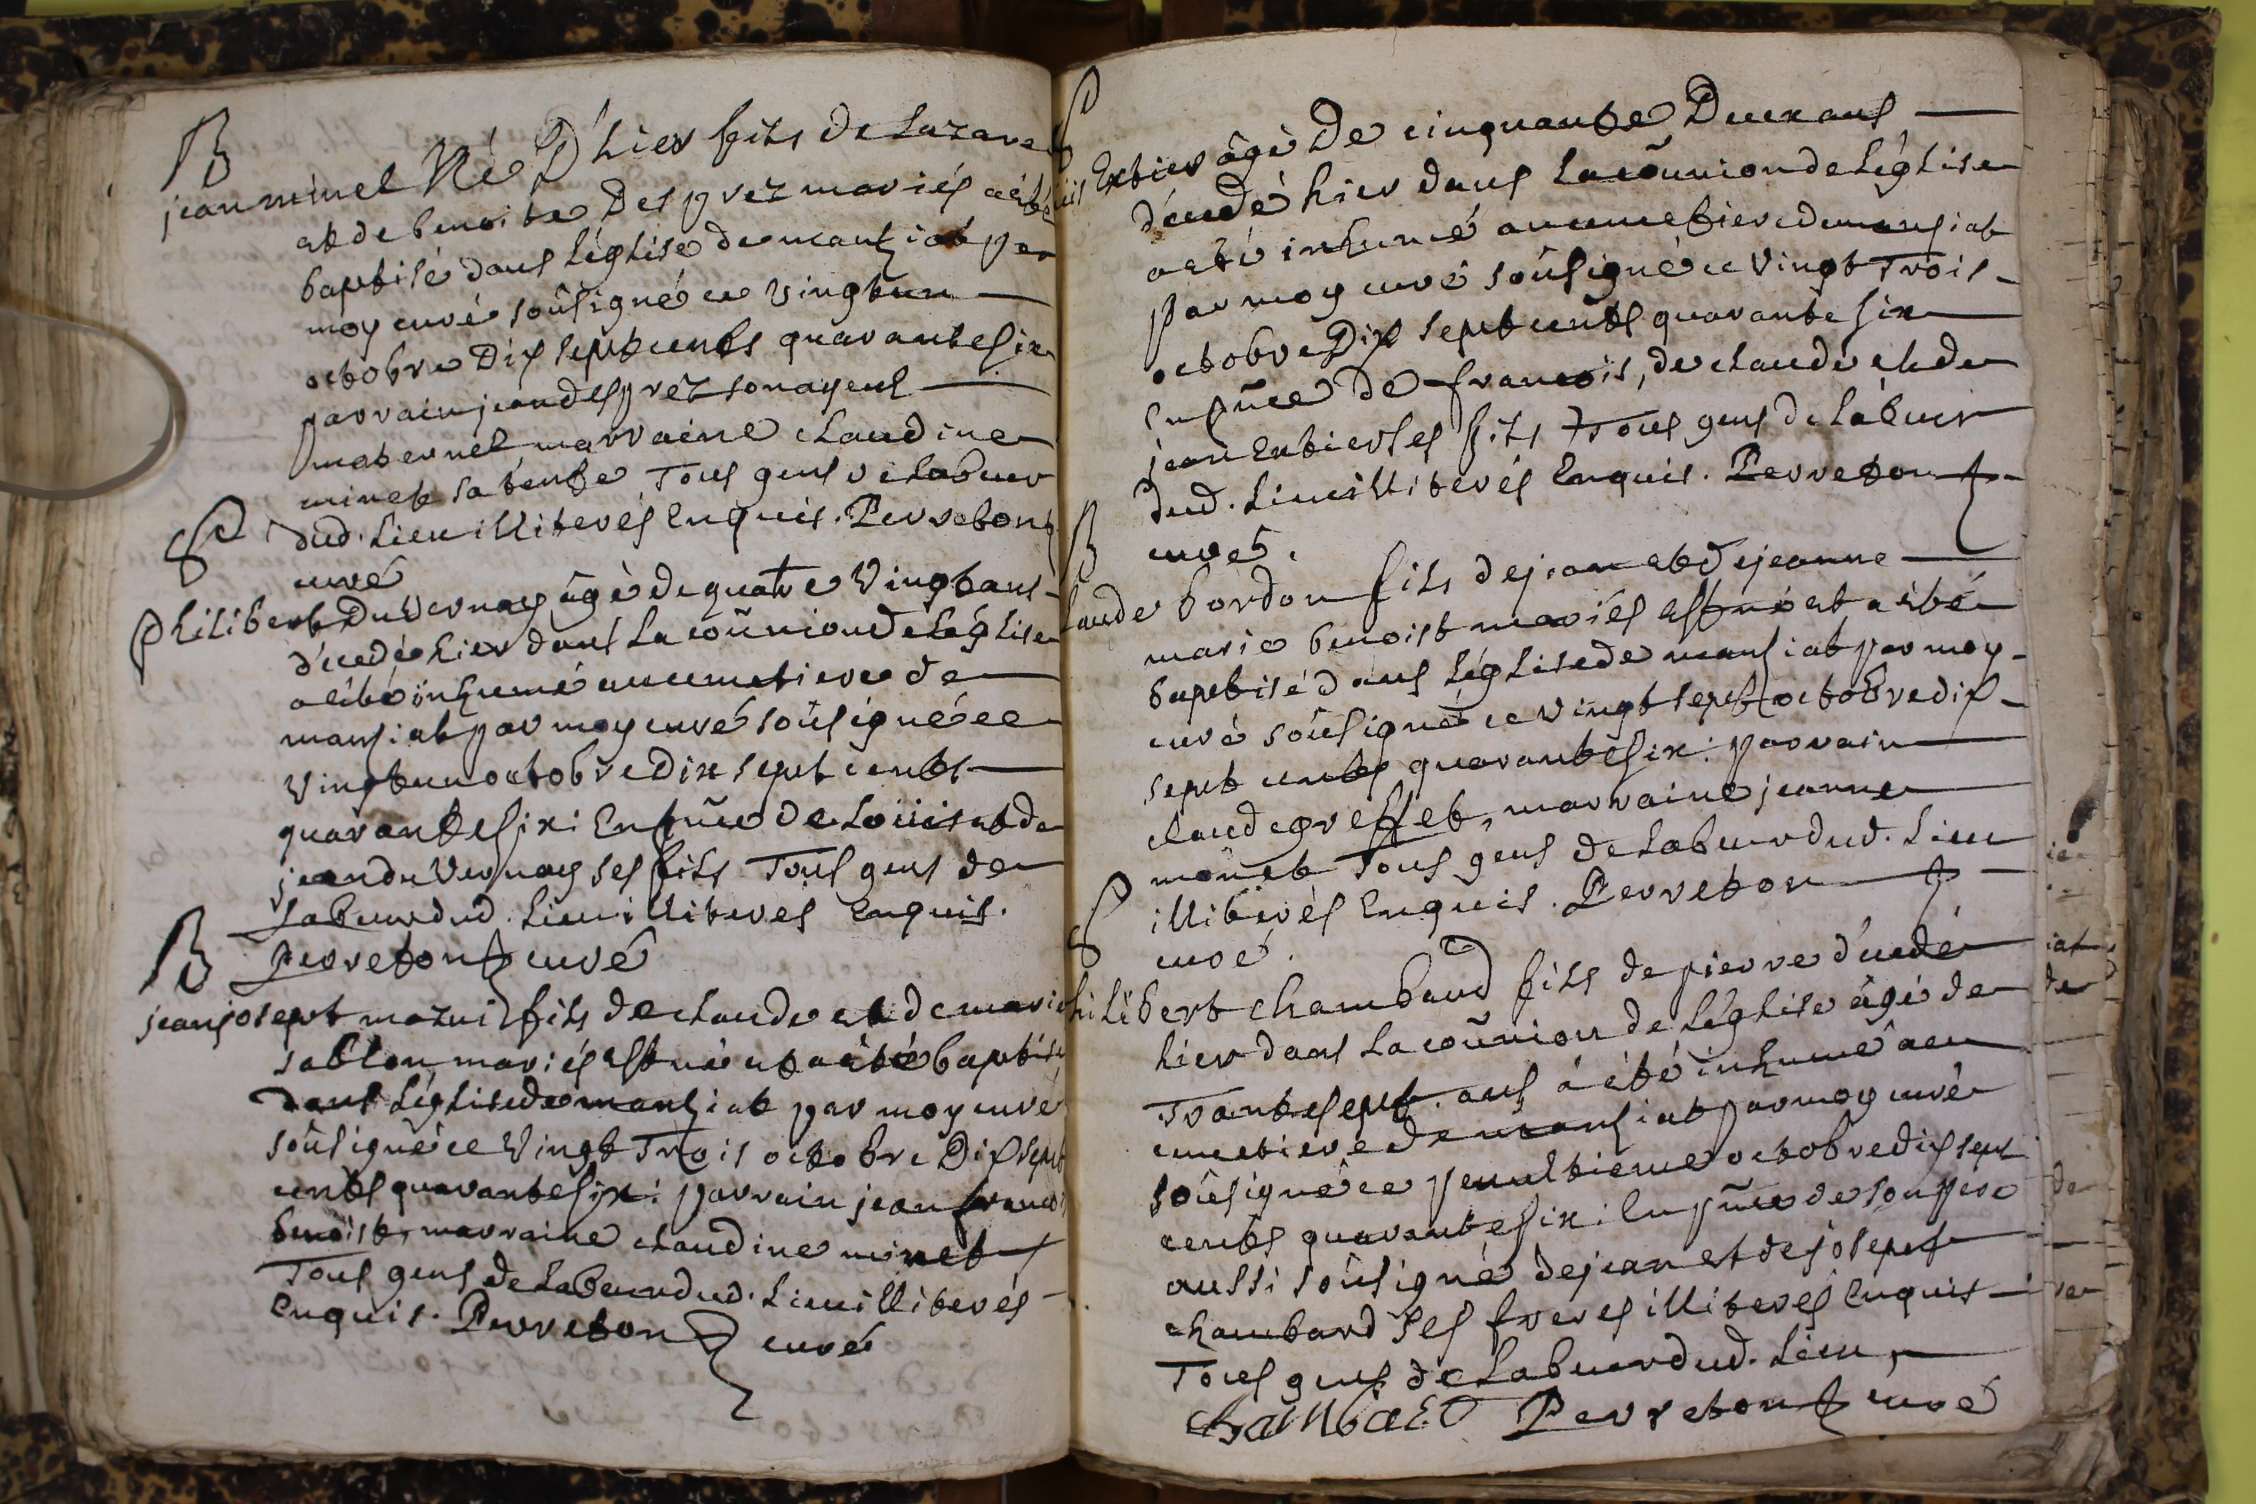 B
jean minet Né D'hier fils de Lazare
et de benoite Desprez mariés a été
baptisé dans l'église de mantziat par
moy curé soûsigné ce vingt un
octobre Dix sept cents quarante six
parrain jean desprez son ayeul
maternel, marraine claudine
minet sa tente Tous gens de Labeur
dud. Lieu illiterés Enquis. Perreton
curé
S
Philibert Du Vernay âgé de quatre Vingt ans
décedé hier dans La coũnion de Léglise
a été inhumé au cimetiere de
mantziat par moy curé soûsigné ce
Vingt un octobre Dix sept cents
quarante six : En pñce de Loüis et de
jean du Vernay ses fils Tous gens de
Labeur dud. Lieu illiterés Enquis.
Perreton curé
B
jean josept mazui fils de claude et de marie
sablon mariés est né et a été baptisé
dans L'église de mantziat par moy curé
soûsigné ce Vingt Trois octobre Dix sept
cents quarante six : parrain jean francois
benoist, marraine claudine minet
Tous gens de Labeur dud. Lieu illiterés
Enquis. Perreton curé
S
Extier âgé De cinquante Deux ans
décedé hier dans La coũnion de Léglise
a été inhumé au cimetiere de mantziat
par moy curé soûsigné ce Vingt Trois
octobre Dix sept cents quarante six
En pñce de francois, de claude et de
jean Extier ses fils Tous gens de Labeur
dud. Lieu illiterés Enquis. Perreton
curé.
B
claude bordon fils de jean et de jeanne
marie benoist mariés est né et a été
baptisé dans Léglise de mantziat par moy
curé soûsigné ce vingt sept octobre dix
sept cents quarante six : parrain
claude greffet, marraine jeanne
monet Tous gens de Labeur dud. Lieu
illiterés Enquis. Perreton
curé.
S
philibert chambard fils de pierre décedé
hier dans La coũnion de Léglise âgé de
Trante sept ans a été inhumé au
cimetiere de mantziat par moy curé
soûsigné ce penultieme octobre dix sept
cents quarante six : En pñce de son pere
aussi soûsigné de jean et de josept
chambard ses freres illiterés Enquis
Tous gens de Labeur dud. Lieu
chambard Perreton curé